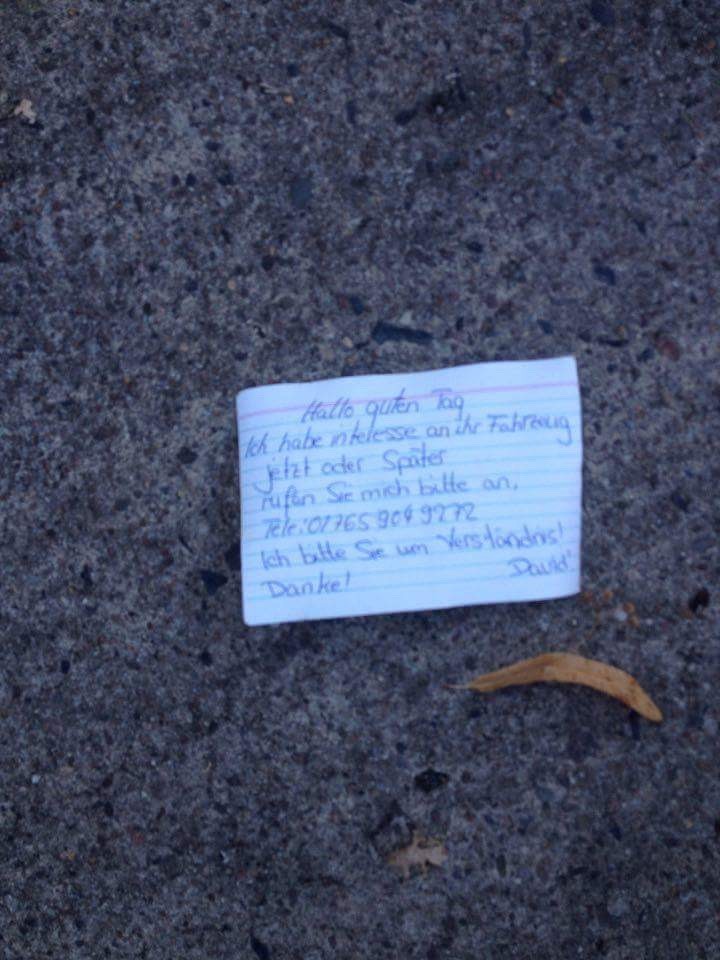 Hallo guten Tag
Ich habe interesse an ihr Fahrzeug
jetzt oder Später
rufen Sie mich bitte an.
Tele: 01765 904 9272
Ich bitte Sie um Verständnis!
Danke! David